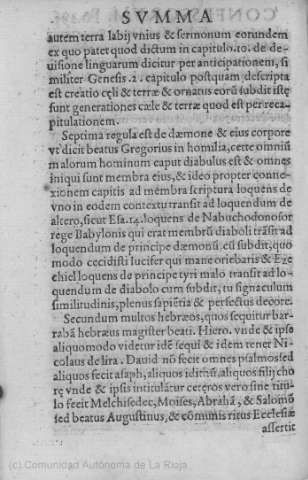 SVMMA
autem terra labij vnius & sermonum eorundem
ex quo patet quod dictum in capitulo.10. de de-
uisione linguarum dicitur per anticipationem, si
militer Genesis .2. capitulo postquam descripta
est creatio cęli & terræ & ornatus eorū subdit istę
sunt generationes cæle & terræ quod est per reca
pitulationem.
Septima regula est de dæmone & eius corpore
vt dicit beatus Gregorius in homilia, certe omniū
malorum hominum caput diabulus est & omnes
iniqui sunt membra eius, & ideo propter conne-
xionem capitis ad membra scriptura loquens de
vno in eodem contextu transit ad loquendum de
altero, sicut Esa.14. loquens de Nabuchodonosor
rege Babylonis qui erat membrū diaboli trāsit ad
loquendum de principe dæmonū, cū subdit, quo
modo cecidisti lucifer qui mane oriebaris & Eze
chiel loquens de principe tyri malo transit ad lo-
quendum de diabolo cum subdit, tu signaculum
similitudinis, plenus sapiētia & perfectus decore.
Secundum multos hebræos, quos sequitur bar-
rabā hebræus magister beati. Hiero. vnde & ipso
aliquomodo videtur idē sequi & idem tenet Ni-
colaus de lira. Dauid nō fecit omnes psalmos sed
aliquos fecit asaph, aliquos idithū, aliquos filij cho
rę vnde & ipsis intitulātur ceteros vero sine titu-
lo fecit Melchisedec, Moises, Abrahā, & Salomō
sed beatus Augustinus, & cōmunis ritus Ecclesiæ
assertit
(c) Comunidad Autónoma de La Rioja